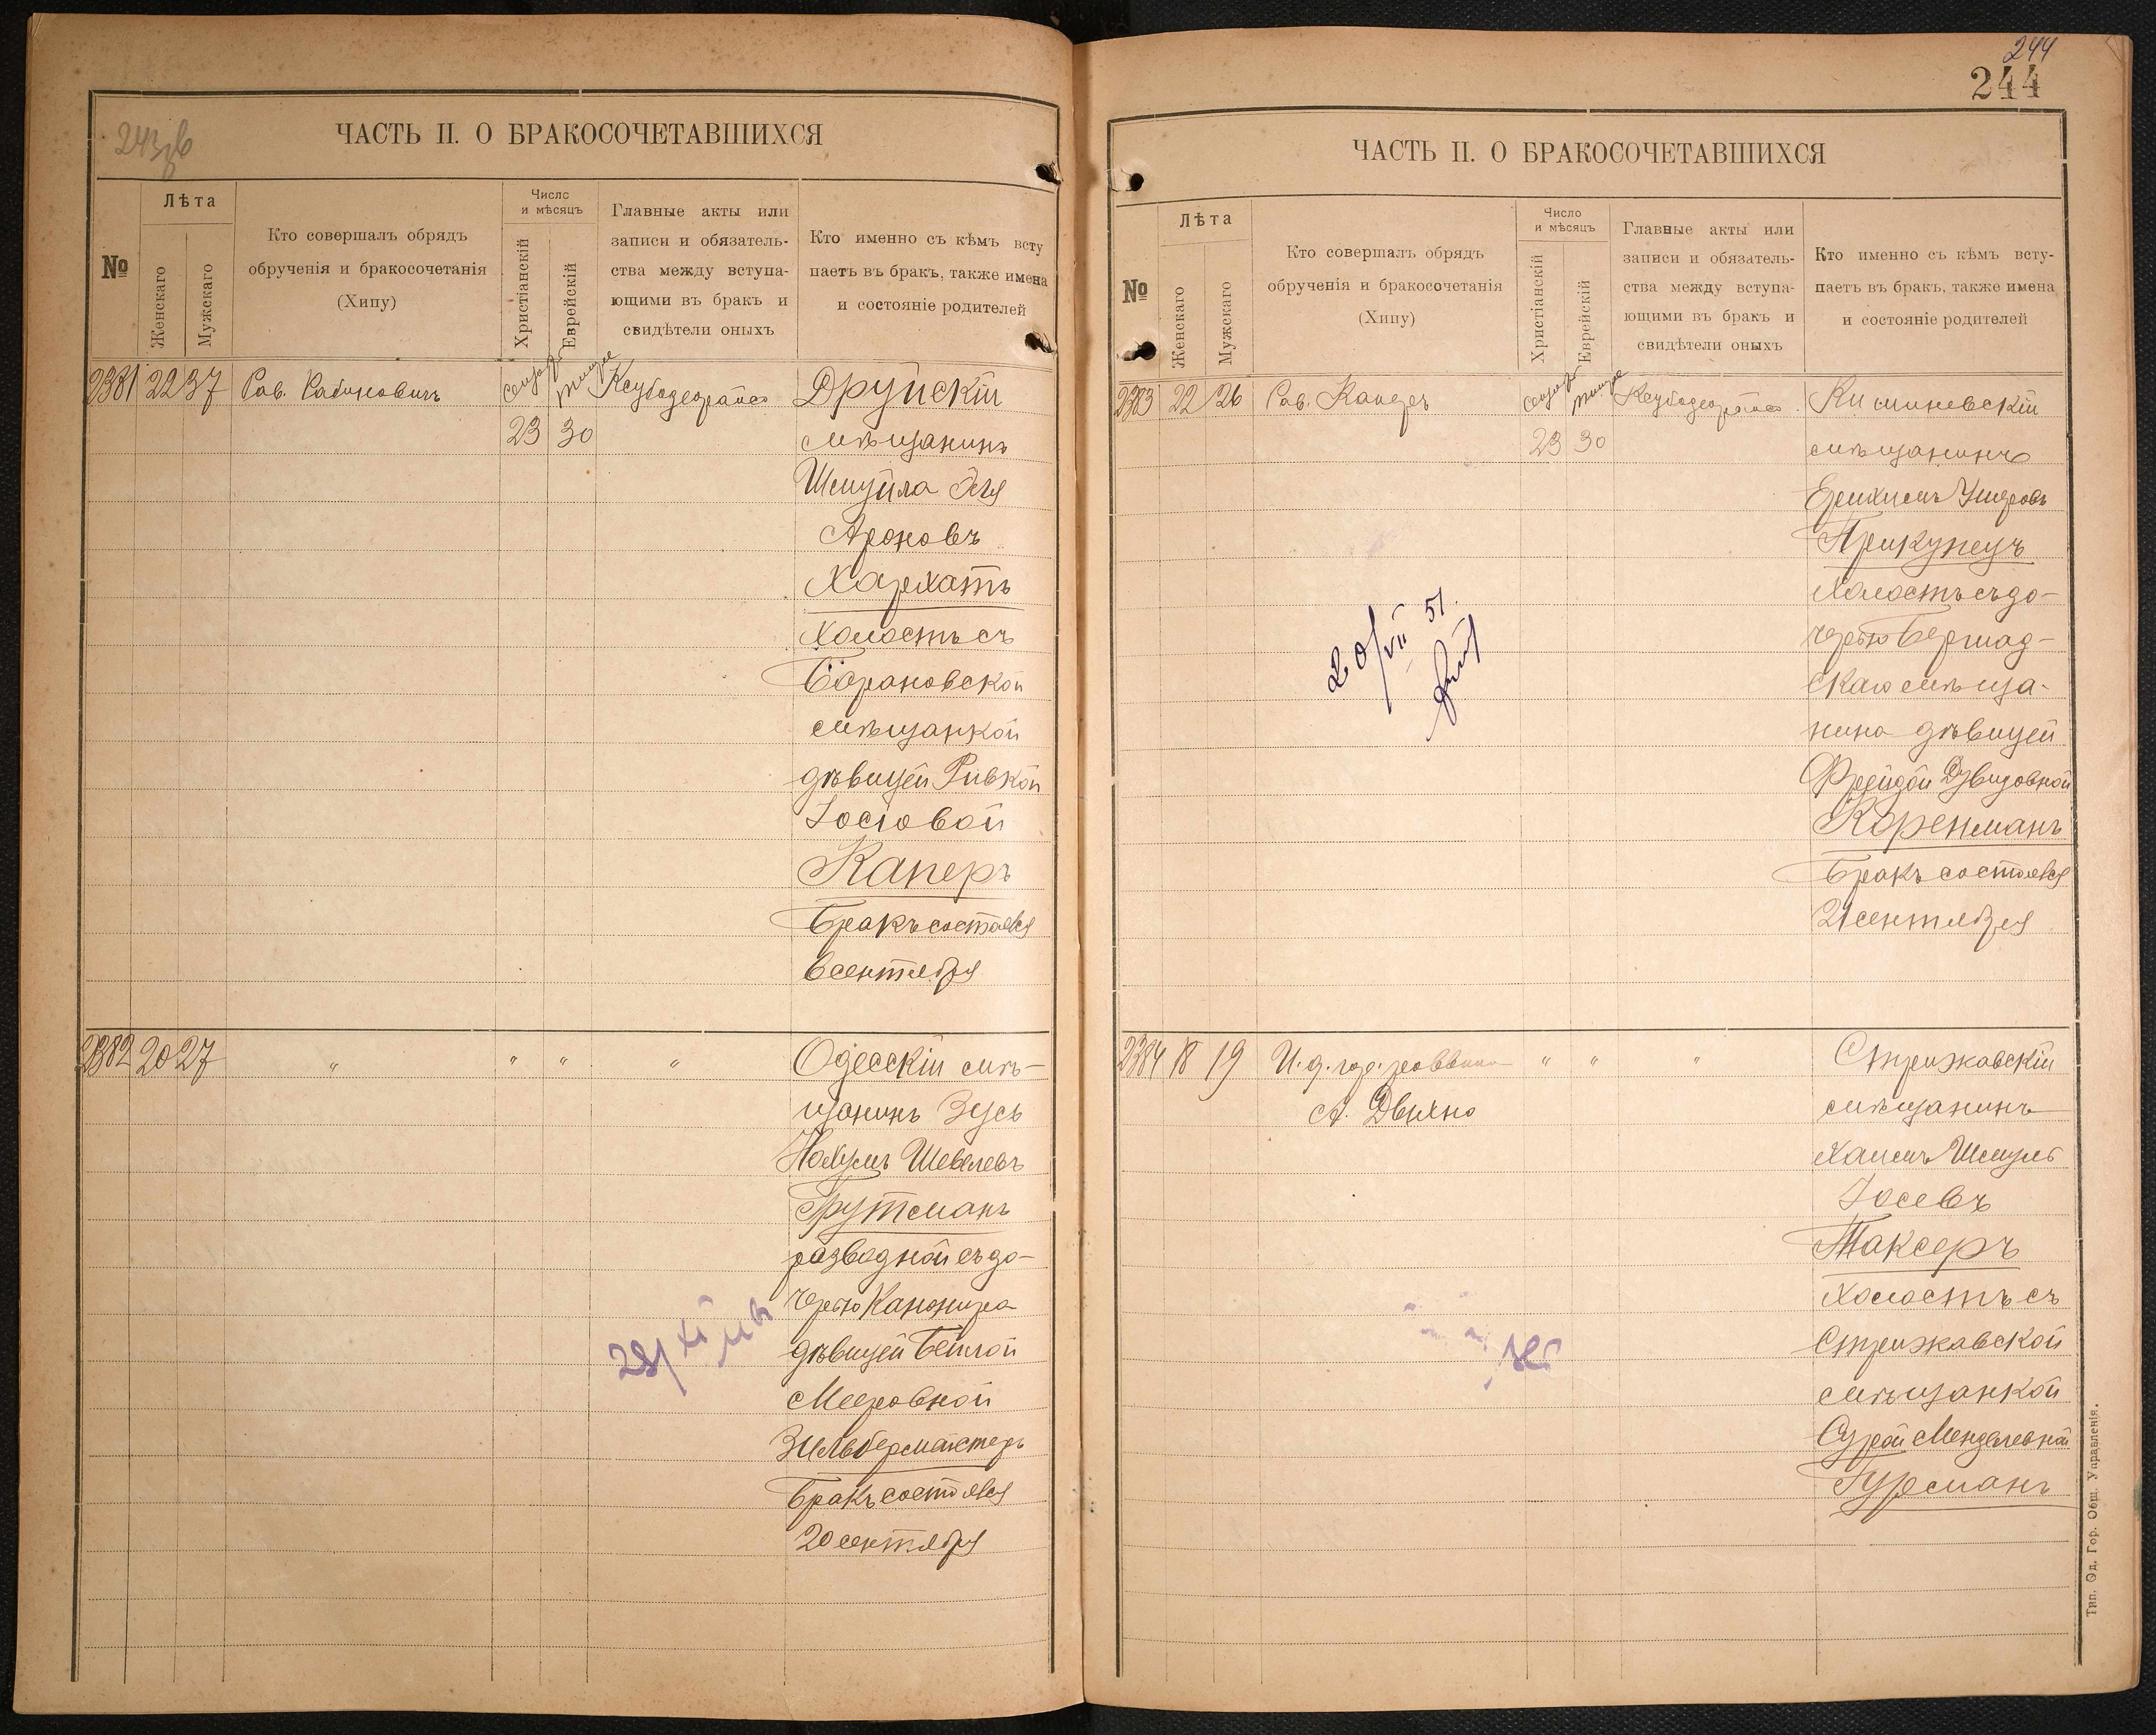 ЧАСТЬ II. О БРАКОСОЧЕТАВШИХСЯ
№
Лѣта
Женскаго
Мужскаго
Кто совершалъ обрядъ
обрученія и бракосочетанія
(Хипу)
Число
и мѣсяцъ
Христіанскій
Еврейскій
Главные акты или
записи и обязатель-
ства между вступа-
ющими въ бракъ и
свидѣтели оныхъ
Кто именно съ кѣмъ всту
паетъ въ бракъ, также имена
и состояніе родителей
2381 22 37 Рав. Рабиновичъ
23 30
Друйскій
мѣщанинъ
Шмуйла
Ароновъ
Хархатъ
холостъ съ
Барановской
мѣщанкой
дѣвицей Ривкой
Іосіовой
Каперъ
Бракъ состоялся
6 сентября
2382 20 27 " " " "
Одесскій мѣ-
щанинъ Зусь
Нахумъ Шевелевъ
Трутманъ
разводной съ до-
черью Канонира
дѣвицей Бейлой
Мееровной
Зильбермайстеръ
Бракъ состоялся
20 сентября
244
244
ЧАСТЬ II. О БРАКОСОЧЕТАВШИХСЯ
№
Лѣта
Женскаго
Мужскаго
Кто совершалъ обрядъ
обрученія и бракосочетанія
(Хипу)
Число
и мѣсяцъ
Христіанскій
Еврейскій
Главные акты или
записи и обязатель-
ства между вступа-
ющими въ бракъ и
свидѣтели оныхъ
Кто именно съ кѣмъ всту-
паетъ въ бракъ, также имена
и состояніе родителей
2383 22 26 Рав. Канцеръ
23 30
Кишиневскій
мѣщанинъ
Ерихимъ Умеровъ
Прикупецъ
холостъ съ до-
черью Бершад-
скаго мѣща-
нина дѣвицей
Фрейдой Дувидовной
Коренманъ
Бракъ состоялся
21 сентября
20/VII 51.
2384 18 19 И. д. гор. раввина " " "
А. Двихно
Стрижавскій
мѣщанинъ
Хаимъ Шмуль
Іосевъ
Таксеръ
холостъ съ
Стрижавской
мѣщанкой
Сурой Менделевной
Гурсманъ
Тип. Од. Гор. Общ. Управленія.